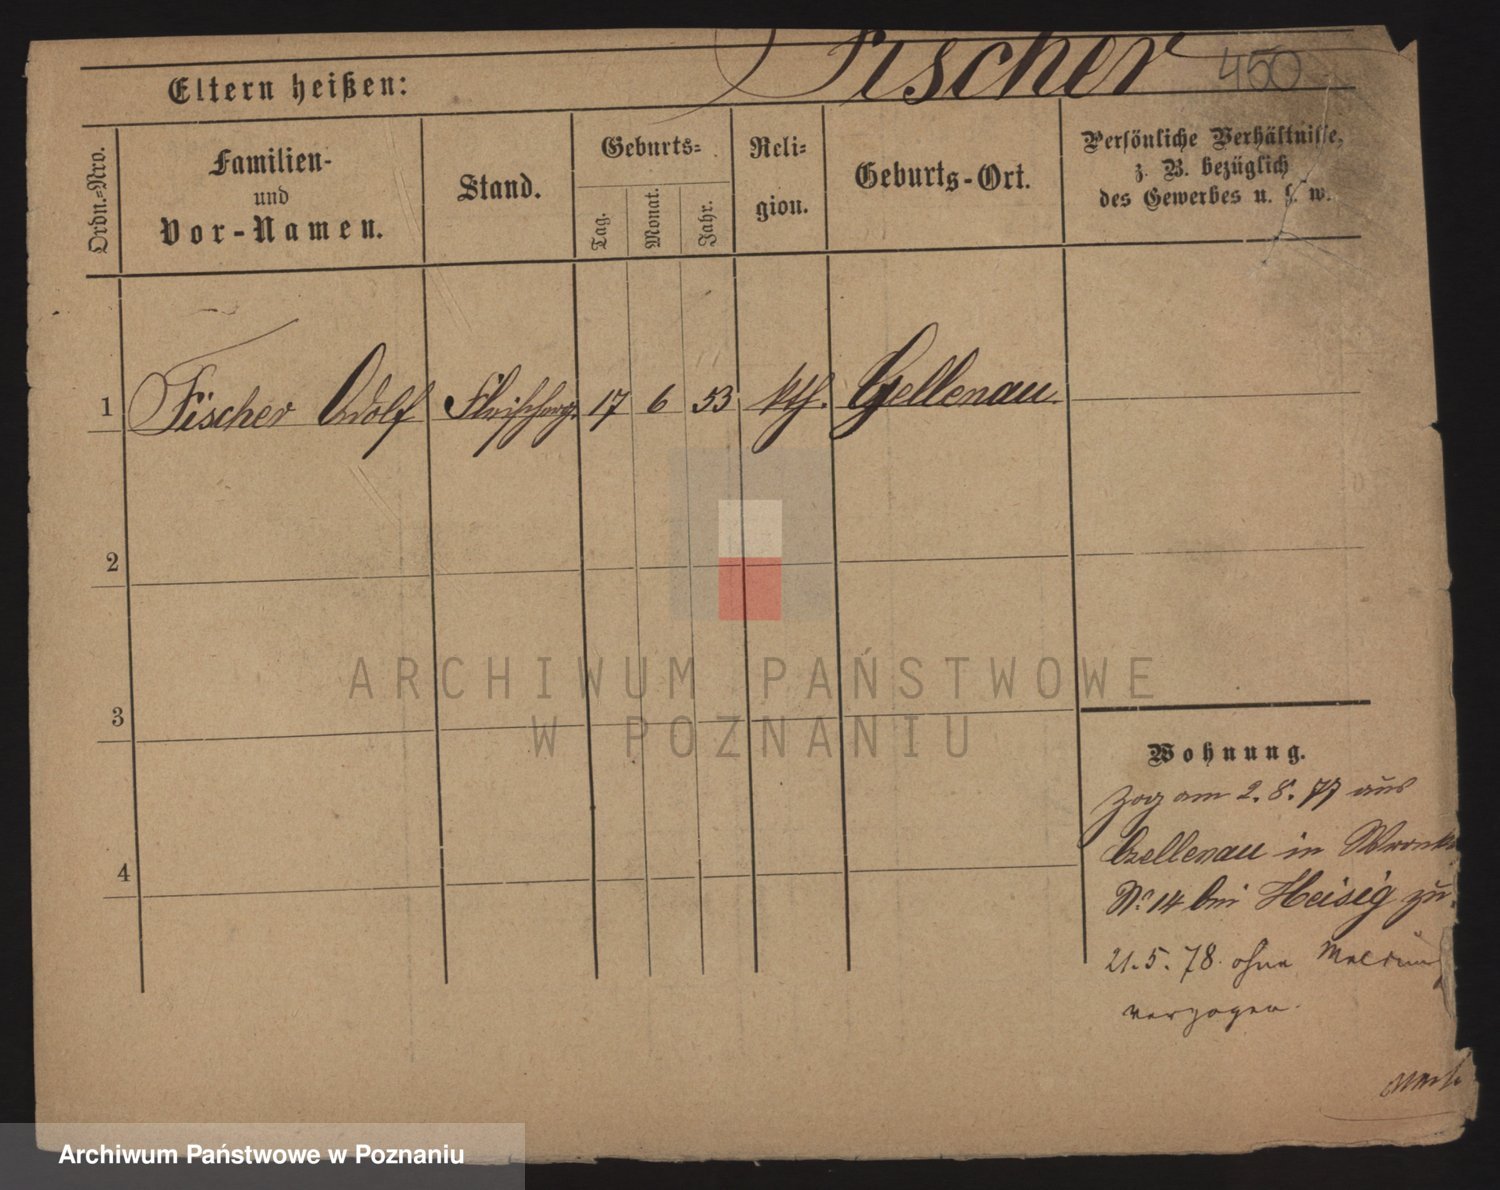 Fischer 450
Eltern heißen:
Ordn.=Nro.
Familien-
und
Vor-Namen.
Stand.
Geburts=
Tag.
Monat.
Jahr.
Reli=
gion.
Geburts-Ort.
Persönliche Verhältnisse,
z. B. bezüglich
des Gewerbes u. s. w.
1 Fischer Adolf 17 6 53 kth. Gellenau.
2
3
4
ARCHIWUM PAŃSTWOWE
W POZNANIU
Wohnung.
Zog am 2. 8. 77 aus
Gellenau in
No 14 bei Heisig zu.
21. 5. 78. ohne Meldung
verzogen.
Archiwum Państwowe w Poznaniu